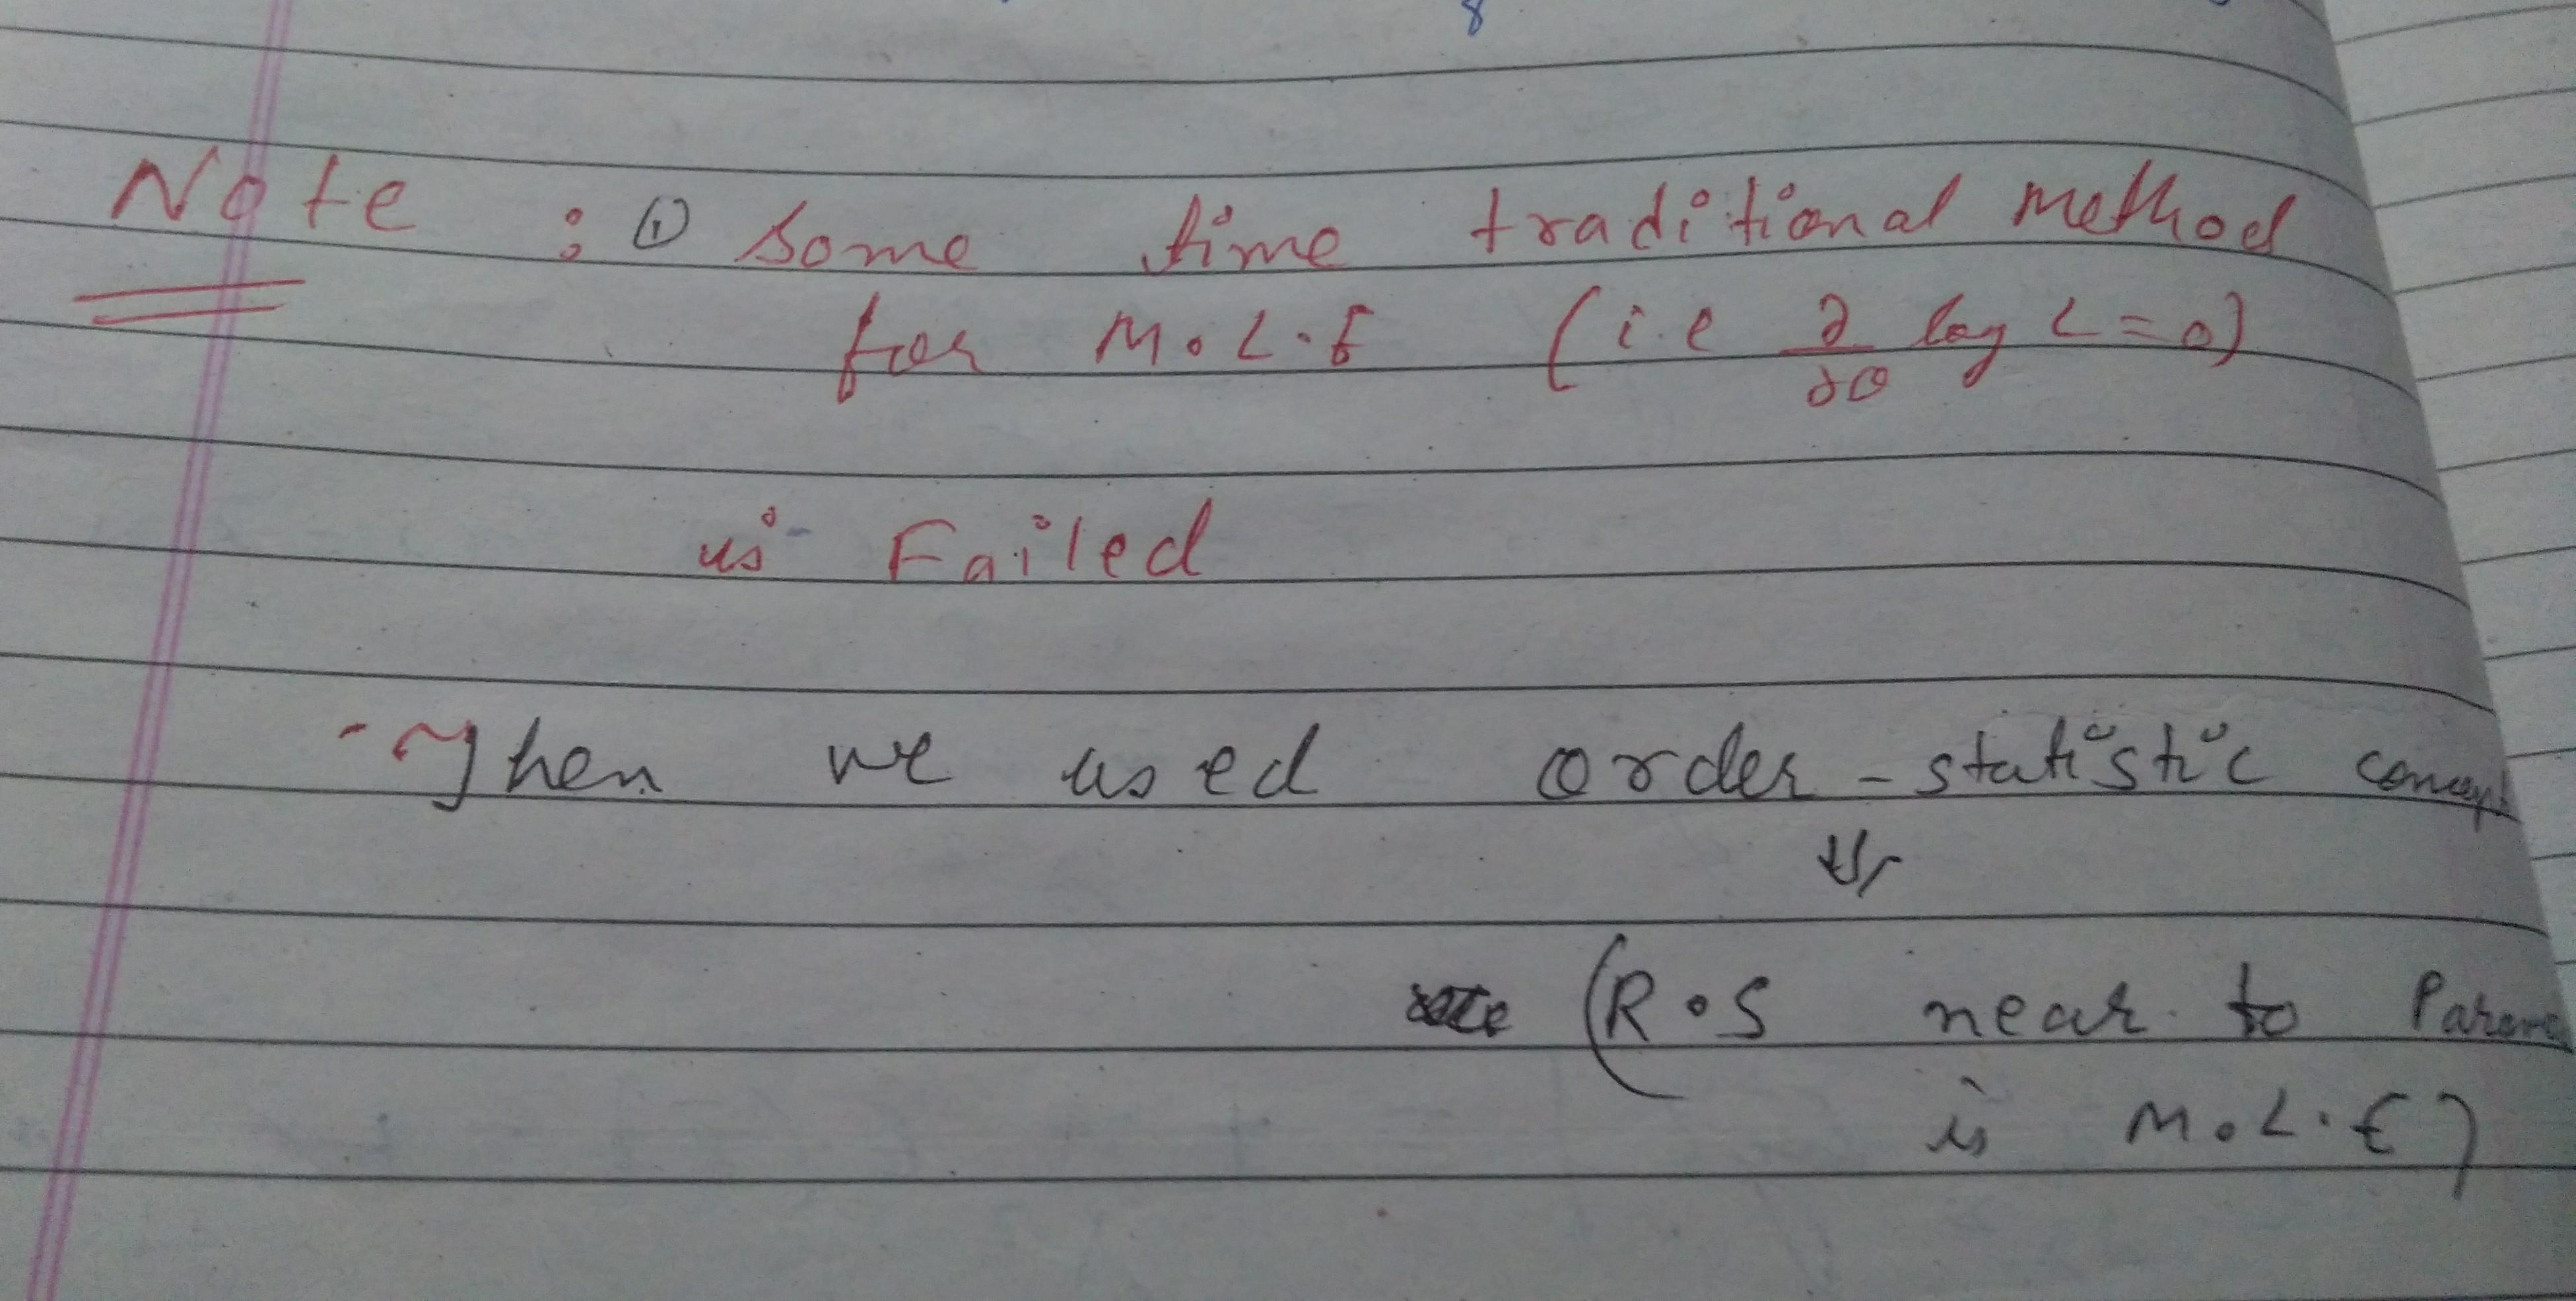 8
Note : ① Some time traditional method
for M.L.E (i.e ∂/∂θ log L = 0)
is Failed
- Then we used order - statistic concept
⇓
(R.S near to Param
is M.L.E)